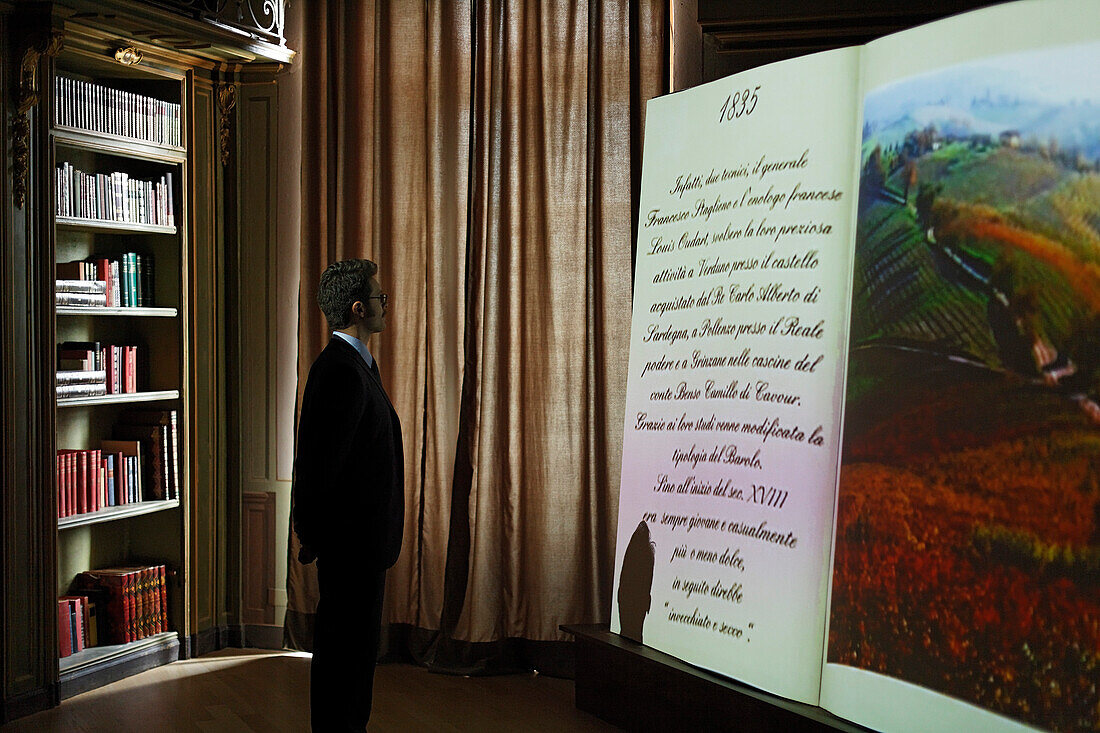 1835
Infatti, due tecnici, il generale
Francesco Staglieno e l'enologo francese
Louis Oudart, svolsero la loro preziosa
attività a Verduno presso il castello
acquistato dal Re Carlo Alberto di
Sardegna, a Pollenzo presso il Reale
podere e a Grinzane nelle cascine del
conte Benso Camillo di Cavour.
Grazie ai loro studi venne modificata la
tipologia del Barolo.
Sino all'inizio del sec. XVIII
era sempre giovane e casualmente
più o meno dolce,
in seguito direbbe
"invecchiato e secco".